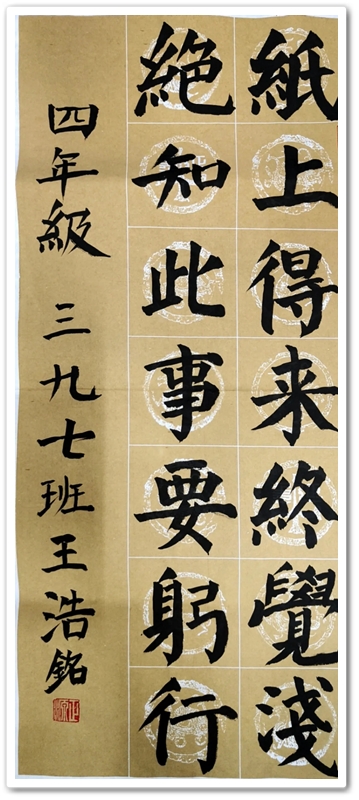 紙上得来終覺淺
絶知此事要躬行
四年級 三九七班王浩銘